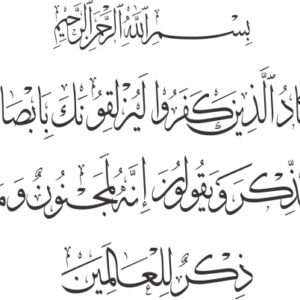 بِسْمِ اللَّهِ الرَّحْمَنِ الرَّحِيمِ
ادُ الَّذِينَ كَفَرُوا لَيُزْلِقُونَكَ بِأَبْصَا
لذِّكْرَ وَيَقُولُونَ إِنَّهُ لَمَجْنُونٌ وَمَ
ذِكْرٌ لِلْعَالَمِينَ